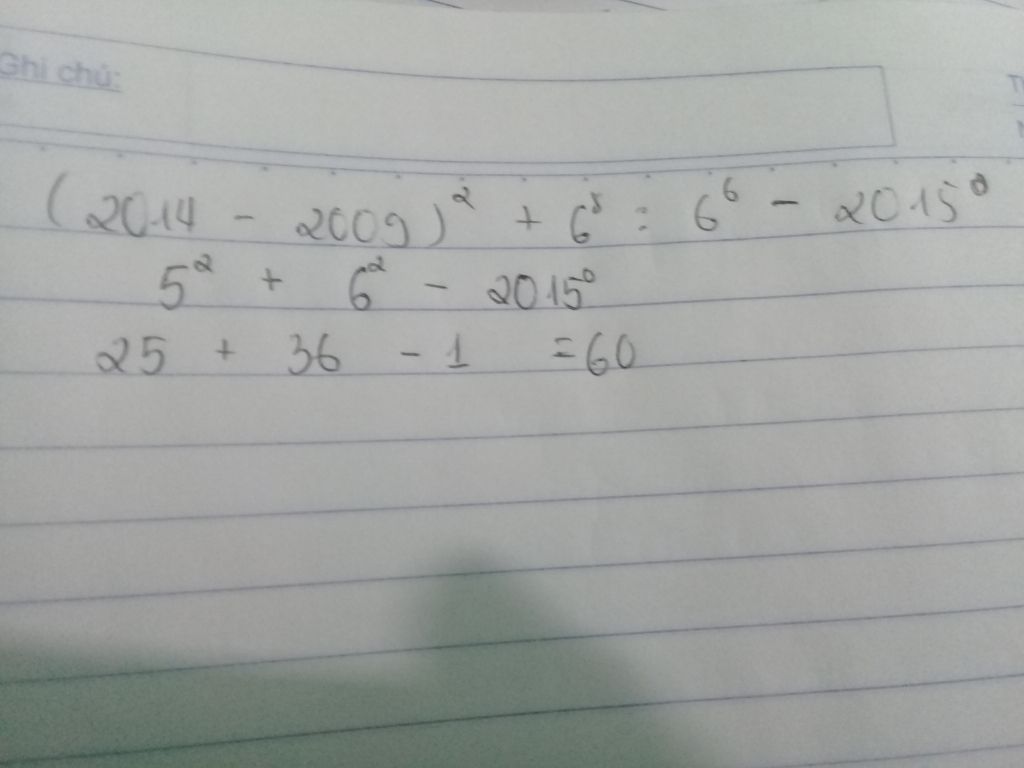 Ghi chú:
(2014 - 2009)² + 6⁸ : 6⁶ - 2015⁰
5² + 6² - 2015⁰
25 + 36 - 1 = 60